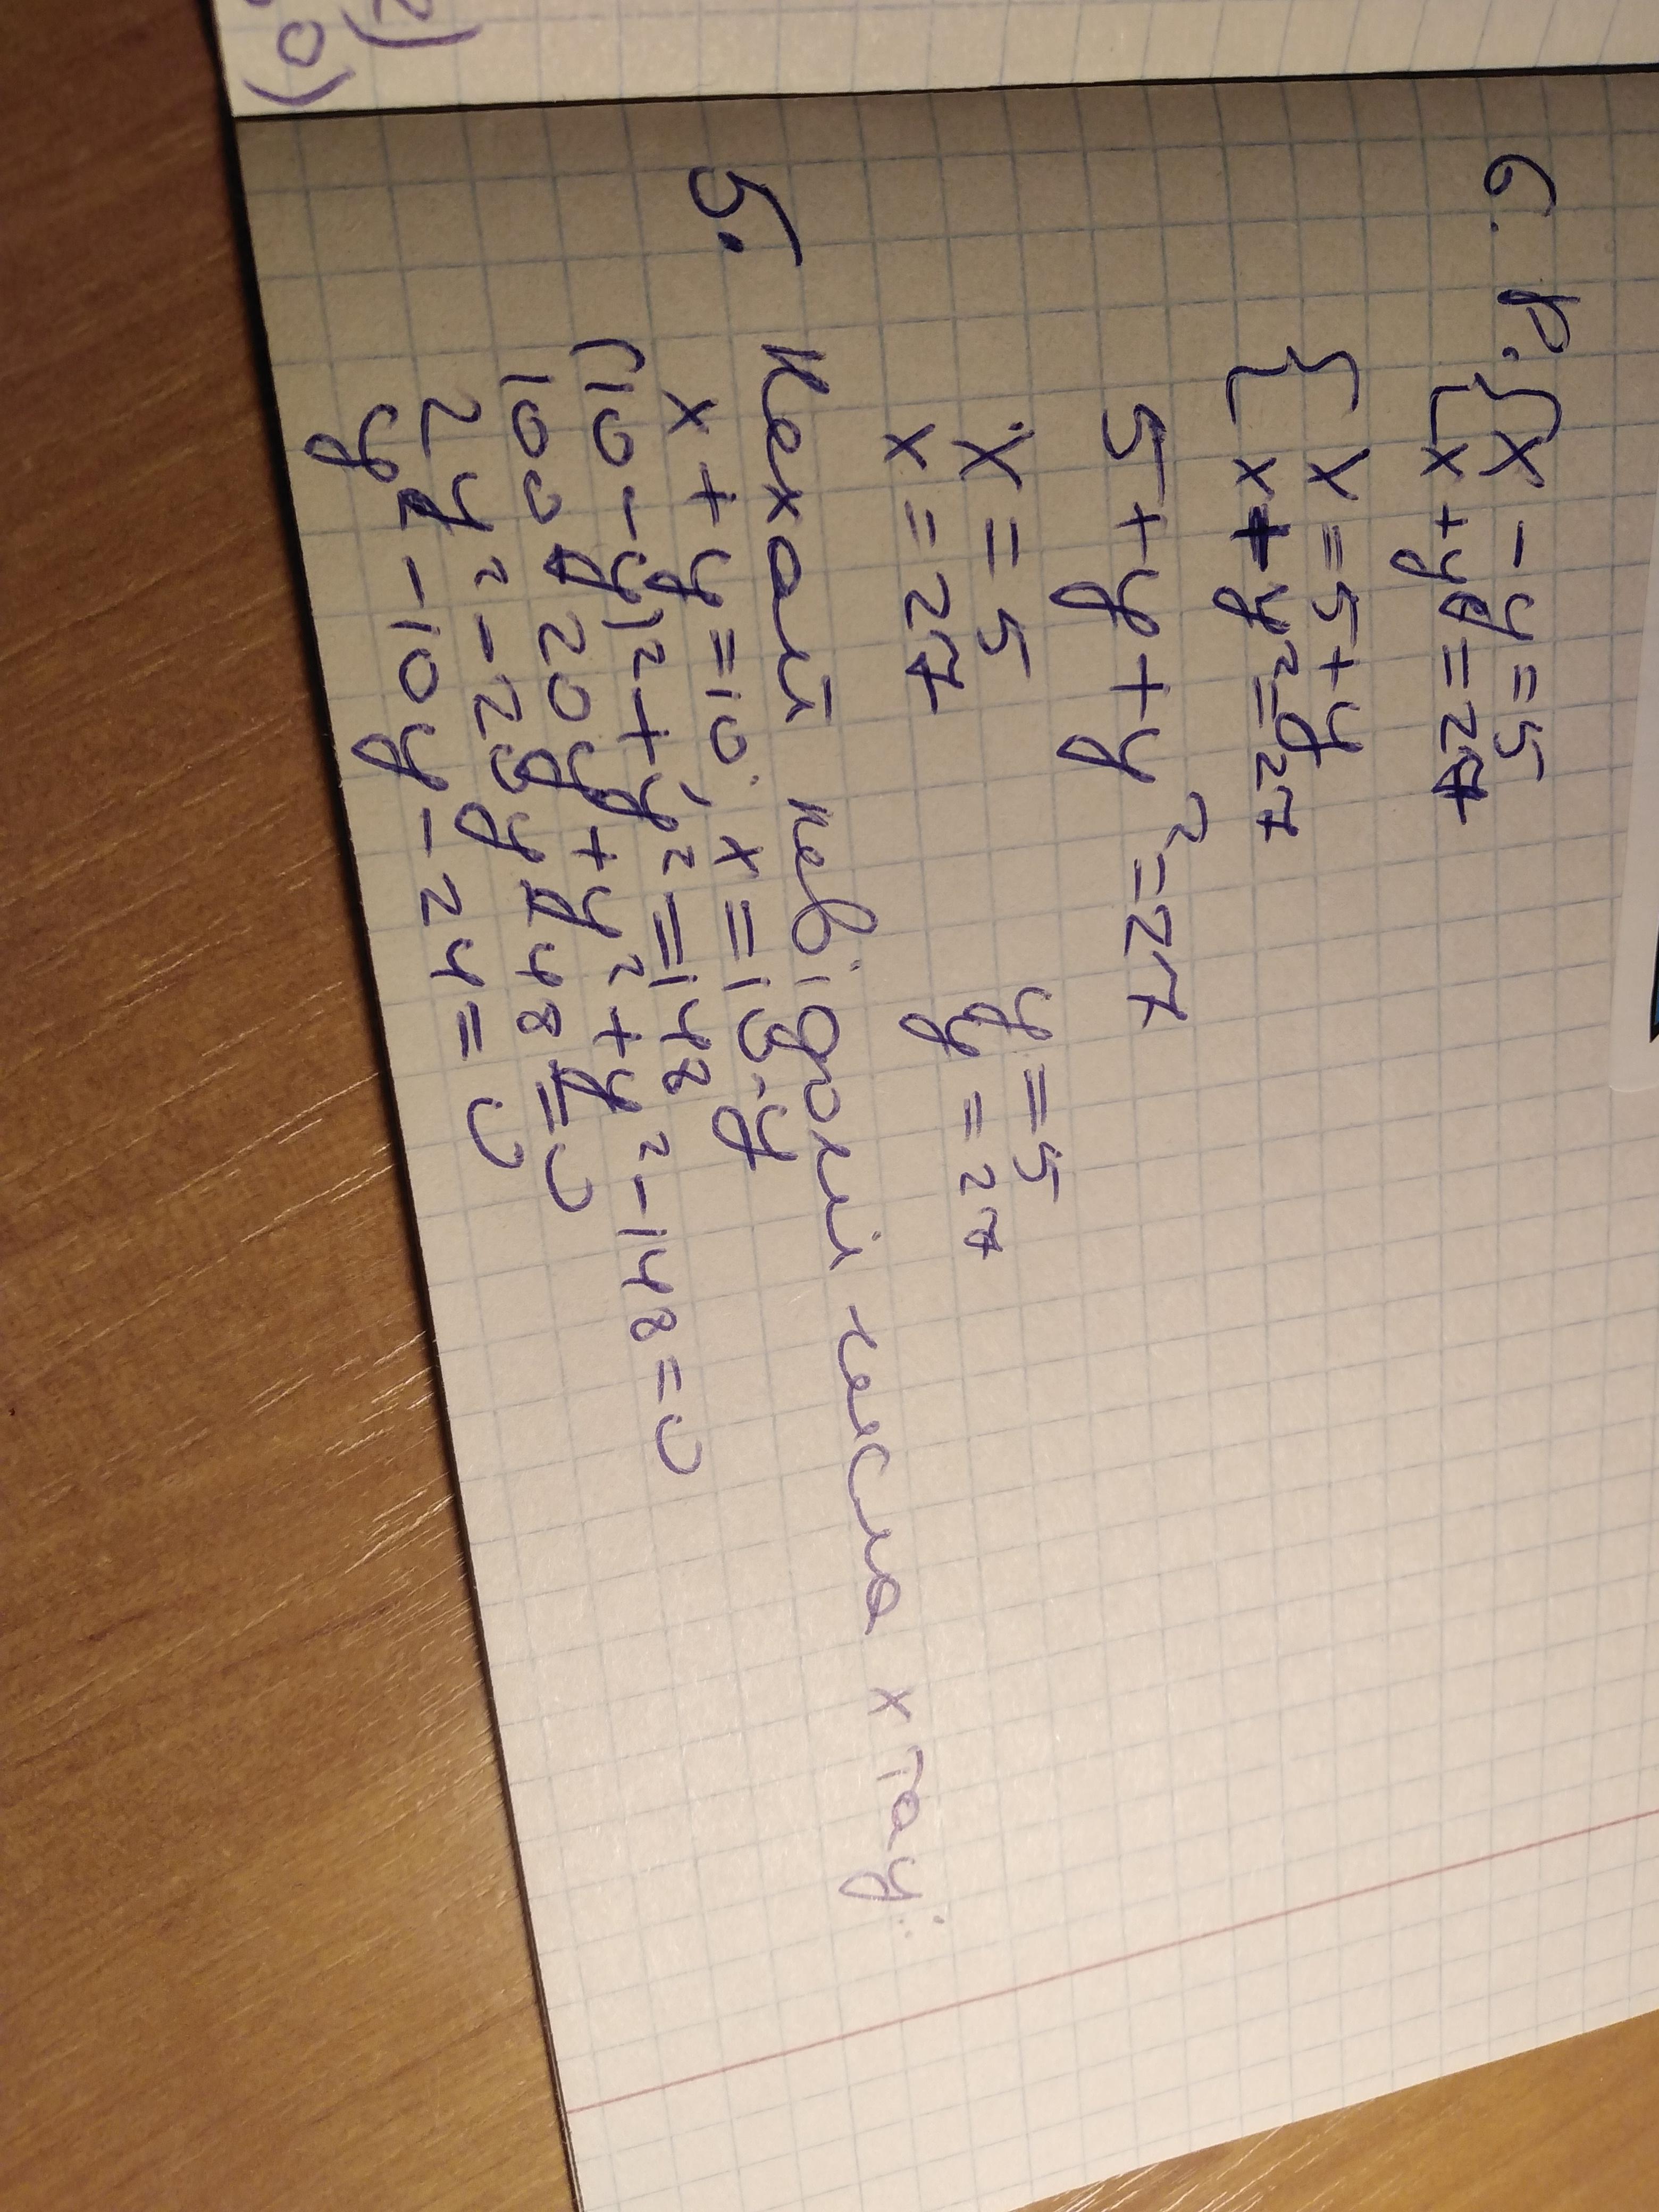 6.
{ x - y = 5
x + y = 27
{ x = 5 + y
x + y² = 27
5 + y + y² = 27
x = 5 y = 5
x = 27 y = 27
5. Нехай невідомі числа x та y:
x + y = 10; x = 10 - y
(10 - y)² + y² = 148
100 - 20y + y² + y² - 148 = 0
2y² - 20y - 48 = 0
y - 10y - 24 = 0
2)
0)